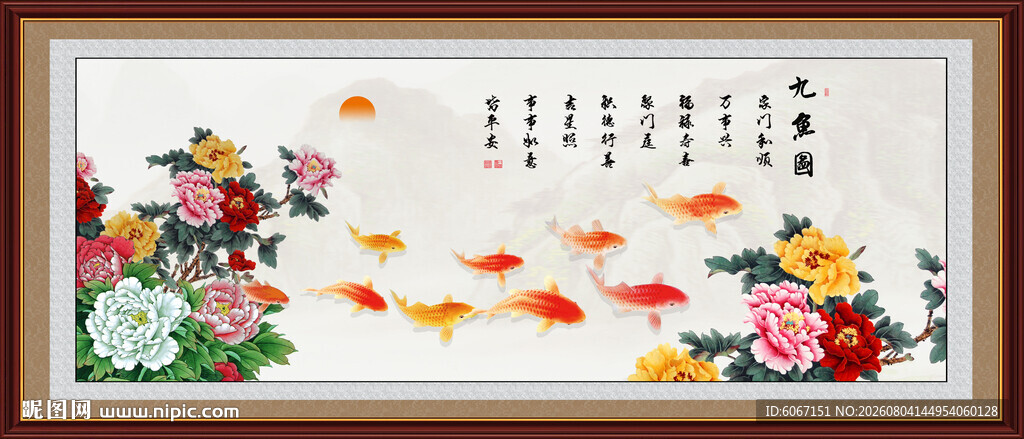 九魚圖
家门和顺
万事兴
福禄寿喜
聚门庭
积德行善
吉星照
事事如意
皆平安
昵图网 www.nipic.com
ID:6067151 NO:20260804144954060128